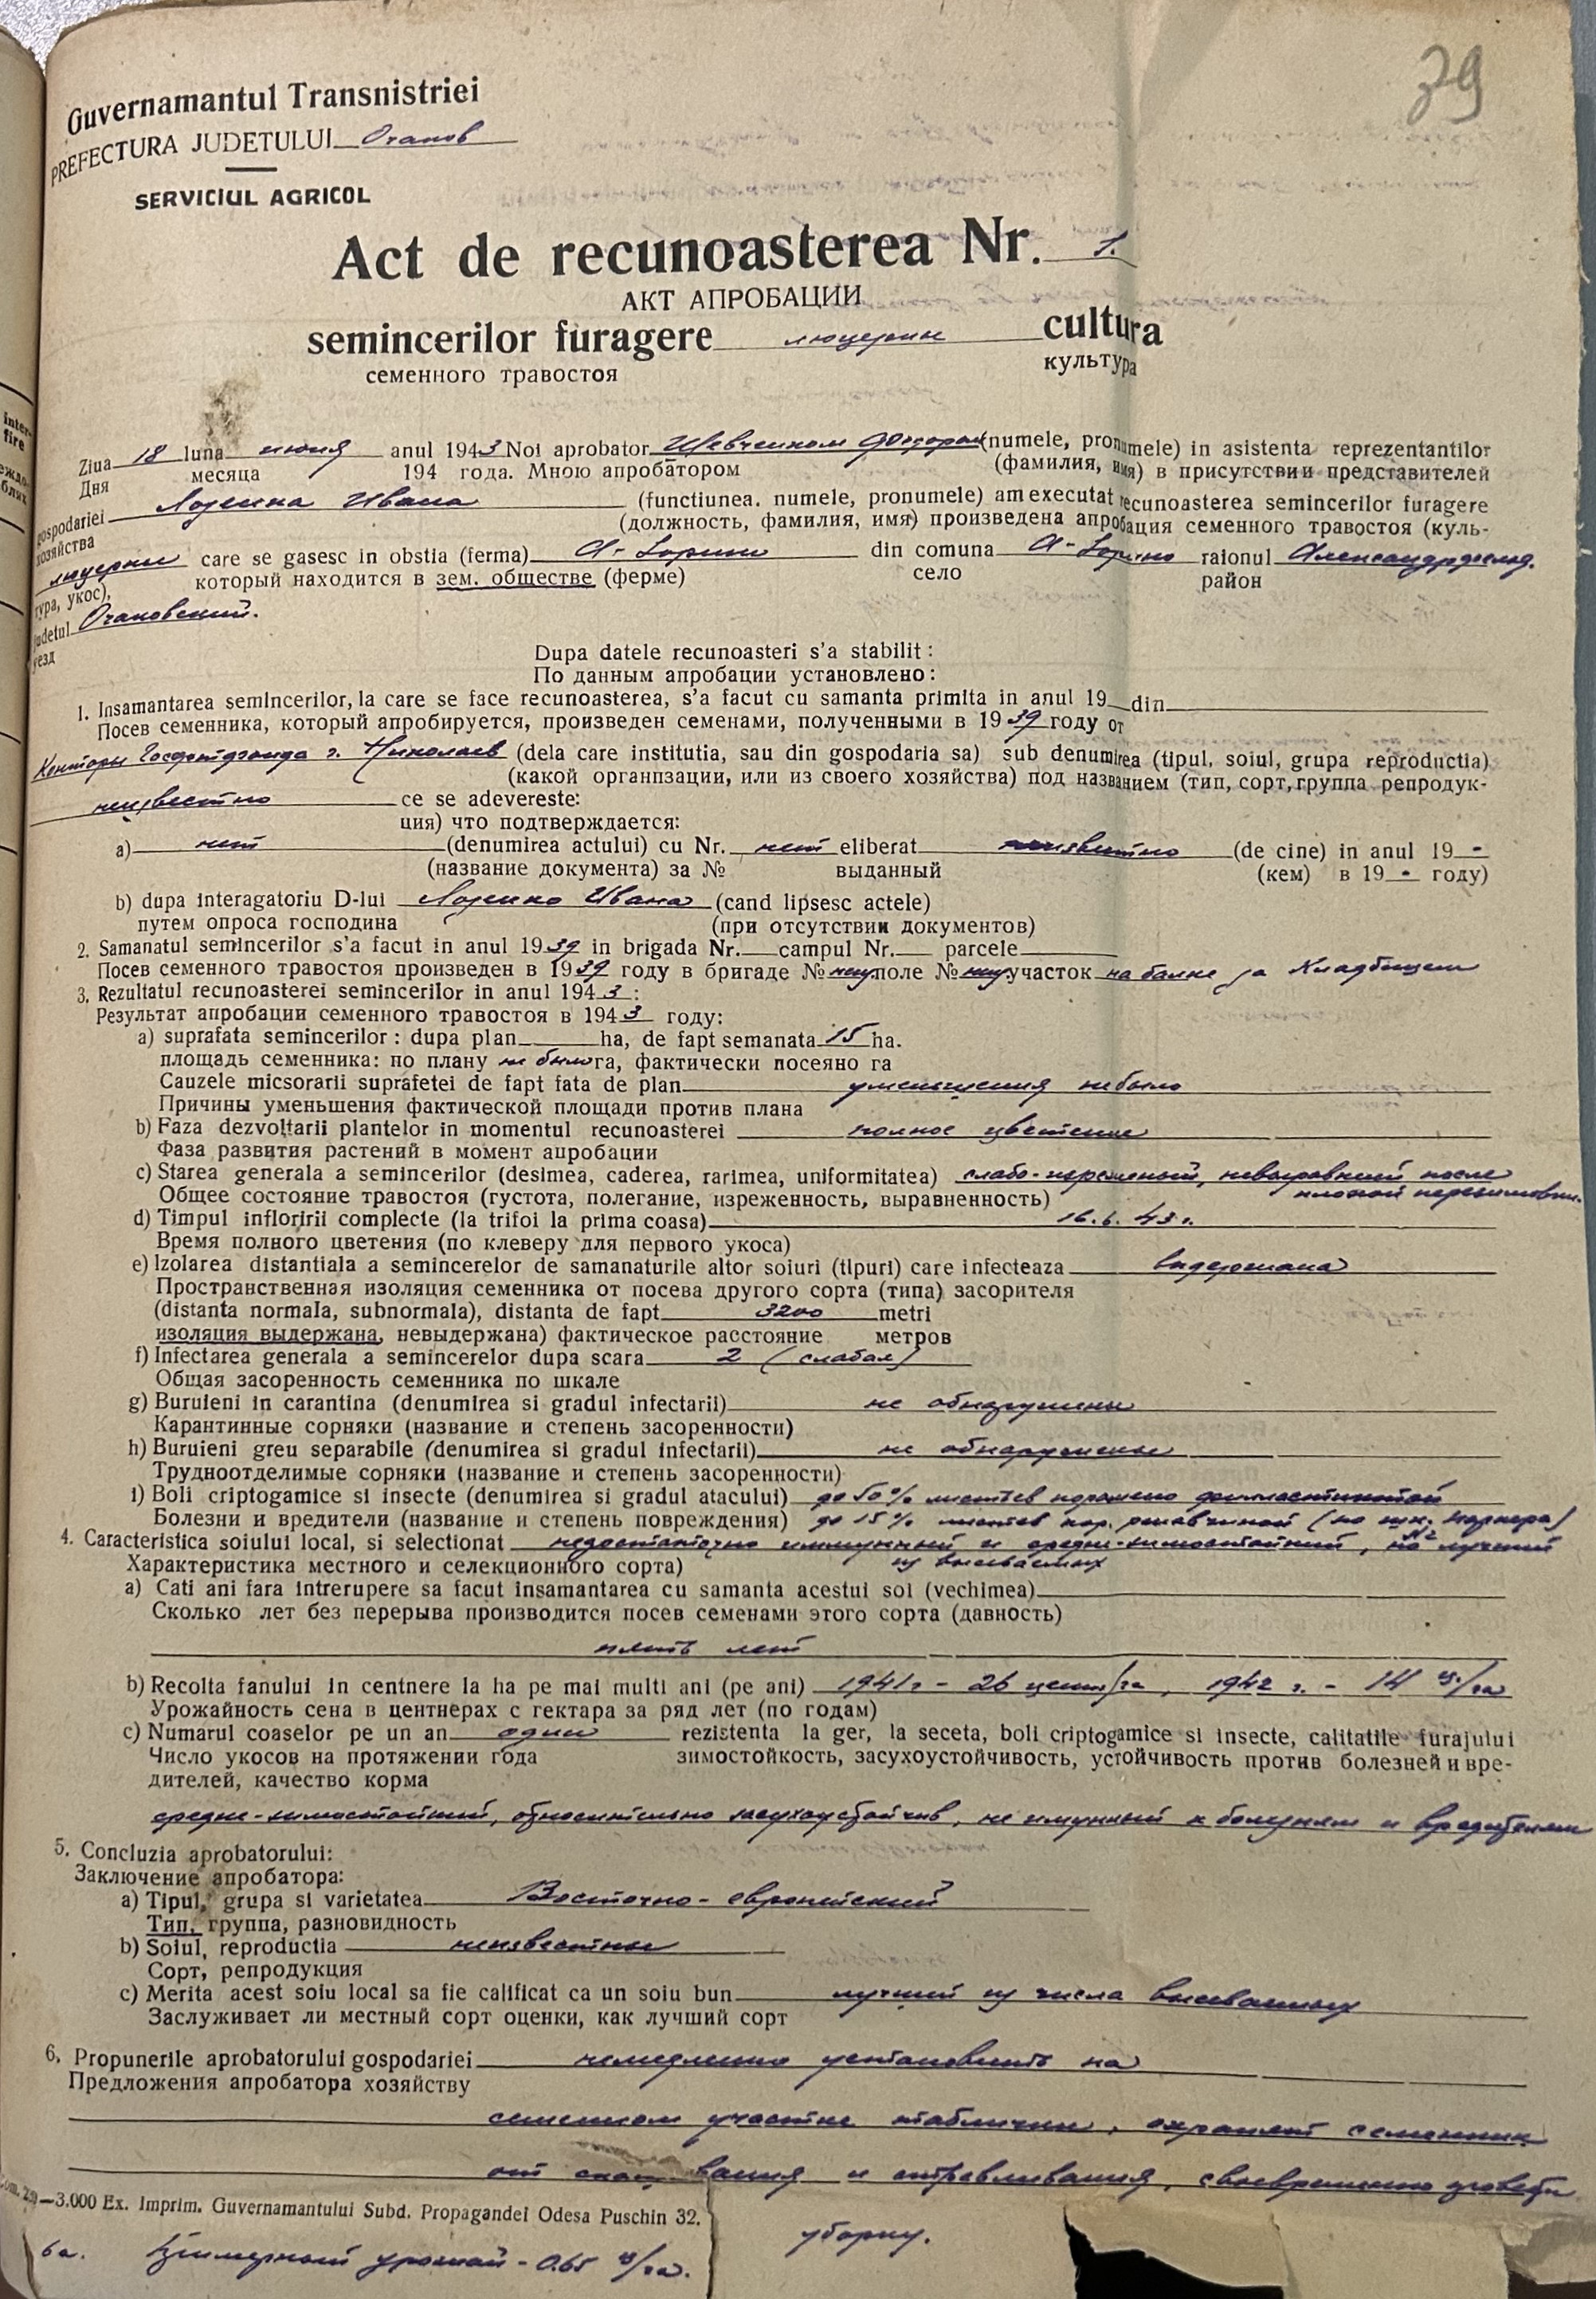 79
Guvernamantul Transnistriei
PREFECTURA JUDETULUI Очаков
SERVICIUL AGRICOL
Act de recunoasterea Nr. 1.
АКТ АПРОБАЦИИ
semincerilor furagere люцерны cultura
семенного травостоя культура
Ziua 18 luna июня anul 1943 Noi aprobator Шевченком (numele, pronumele) in asistenta reprezentantilor
Дня месяца 194 года. Мною апробатором (фамилия, имя) в присутствии представителей
gospodariei Ивана (functiunea. numele, pronumele) am executat recunoasterea semincerilor furagere
хозяйства (должность, фамилия, имя) произведена апробация семенного травостоя (куль-
люцерны care se gasesc in obstia (ferma) din comuna raionul
тура, укос), который находится в зем. обществе (ферме) село район
judetul Очаковский.
уезд
Dupa datele recunoasteri s'a stabilit:
По данным апробации установлено:
1. Insamantarea semincerilor, la care se face recunoasterea, s'a facut cu samanta primita in anul 19 din
Посев семенника, который апробируется, произведен семенами, полученными в 1939 году от
Конторы Госсортфонда г. Николаев (dela care institutia, sau din gospodaria sa) sub denumirea (tipul, soiul, grupa reproductia)
(какой организации, или из своего хозяйства) под названием (тип, сорт, группа репродук-
неизвестно ce se adevereste:
ция) что подтверждается:
a) нет (denumirea actului) cu Nr. нет eliberat неизвестно (de cine) in anul 19 -
(название документа) за № выданный (кем) в 19 - году)
b) dupa interagatoriu D-lui Ивана (cand lipsesc actele)
путем опроса господина (при отсутствии документов)
2. Samanatul semincerilor s'a facut in anul 1939 in brigada Nr. campul Nr. parcele
Посев семенного травостоя произведен в 1939 году в бригаде № поле № участок на балке за Кладбищем
3. Rezultatul recunoasterei semincerilor in anul 1943:
Результат апробации семенного травостоя в 1943 году:
a) suprafata semincerilor: dupa plan ha, de fapt semanata 15 ha.
площадь семенника: по плану не было га, фактически посеяно га
Cauzele micsorarii suprafetei de fapt fata de plan уменьшения небыло
Причины уменьшения фактической площади против плана
b) Faza dezvoltarii plantelor in momentul recunoasterei полное цветение
Фаза развития растений в момент апробации
c) Starea generala a semincerilor (desimea, caderea, rarimea, uniformitatea) слабо-изреженый, невыравненый после
Общее состояние травостоя (густота, полегание, изреженность, выравненность) плохой перезимовки.
d) Timpul infloririi complecte (la trifoi la prima coasa) 16.6.43 г.
Время полного цветения (по клеверу для первого укоса)
e) Izolarea distantiala a semincerelor de samanaturile altor soiuri (tipuri) care infecteaza выдержана
Пространственная изоляция семенника от посева другого сорта (типа) засорителя
(distanta normala, subnormala), distanta de fapt 3200 metri
изоляция выдержана, невыдержана) фактическое расстояние метров
f) Infectarea generala a semincerelor dupa scara 2 (слабая)
Общая засоренность семенника по шкале
g) Buruieni in carantina (denumirea si gradul infectarii) не обнаружены
Карантинные сорняки (название и степень засоренности)
h) Buruieni greu separabile (denumirea si gradul infectarii) не обнаружены
Трудноотделимые сорняки (название и степень засоренности)
i) Boli criptogamice si insecte (denumirea si gradul atacului) до 50% листьев поражено
Болезни и вредители (название и степень повреждения) до 15% листьев пор. ржавчиной
4. Caracteristica soiului local, si selectionat недостаточно иммунный и средне-зимостойкий, но лучший
Характеристика местного и селекционного сорта) из высеваемых
a) Cati ani fara intrerupere sa facut insamantarea cu samanta acestui soi (vechimea)
Сколько лет без перерыва производится посев семенами этого сорта (давность)
пять лет
b) Recolta fanului in centnere la ha pe mai multi ani (pe ani) 1941 г - 26 цент/га, 1942 г. - 14 ц/га
Урожайность сена в центнерах с гектара за ряд лет (по годам)
c) Numarul coaselor pe un an один rezistenta la ger, la seceta, boli criptogamice si insecte, calitatile furajului
Число укосов на протяжении года зимостойкость, засухоустойчивость, устойчивость против болезней и вре-
дителей, качество корма
средне-зимостойкий, относительно засухоустойчив, не имунный к болезням и вредителям
5. Concluzia aprobatorului:
Заключение апробатора:
a) Tipul, grupa si varietatea Восточно-европейский
Тип, группа, разновидность
b) Soiul, reproductia неизвестны
Сорт, репродукция
c) Merita acest soiu local sa fie calificat ca un soiu bun лучший из числа высеваемых
Заслуживает ли местный сорт оценки, как лучший сорт
6. Propunerile aprobatorului gospodariei немедленно установить на
Предложения апробатора хозяйству
семенном участке таблички, охранять семенник
от скашивания и отравливания, своевременно провести
-3.000 Ex. Imprim. Guvernamantului Subd. Propagandei Odesa Puschin 32.
уборку.
6а. Примерный урожай - 0.65 ц/га.